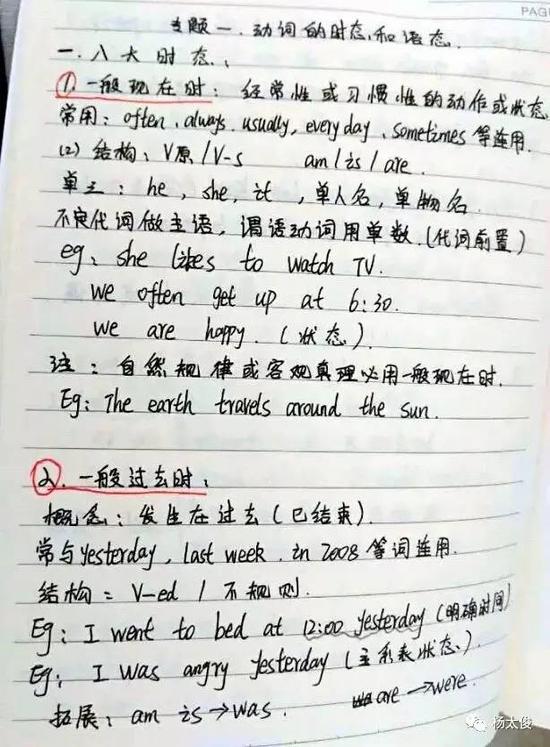 PAGE
专题一、动词的时态和语态.
一、八大时态、
①一般现在时：经常性或习惯性的动作或状态
常用：often、always、usually, every day、sometimes 等连用.
(2) 结构：V原/V-s am/is/are.
单三：he, she, it, 单人名, 单物名.
不定代词做主语，谓语动词用单数.(代词前置)
eg: she likes to watch TV.
we often get up at 6:30.
we are happy. (状态)
注：自然规律或客观真理必用一般现在时.
Eg: The earth travels around the sun.
②. 一般过去时：
概念：发生在过去 (已结束).
常与yesterday, last week, in 2008 等词连用.
结构：V-ed / 不规则.
Eg: I went to bed at 12:00 yesterday (明确时间)
Eg: I was angry yesterday (主系表状态).
拓展：am is→was. are→were.
杨太俊